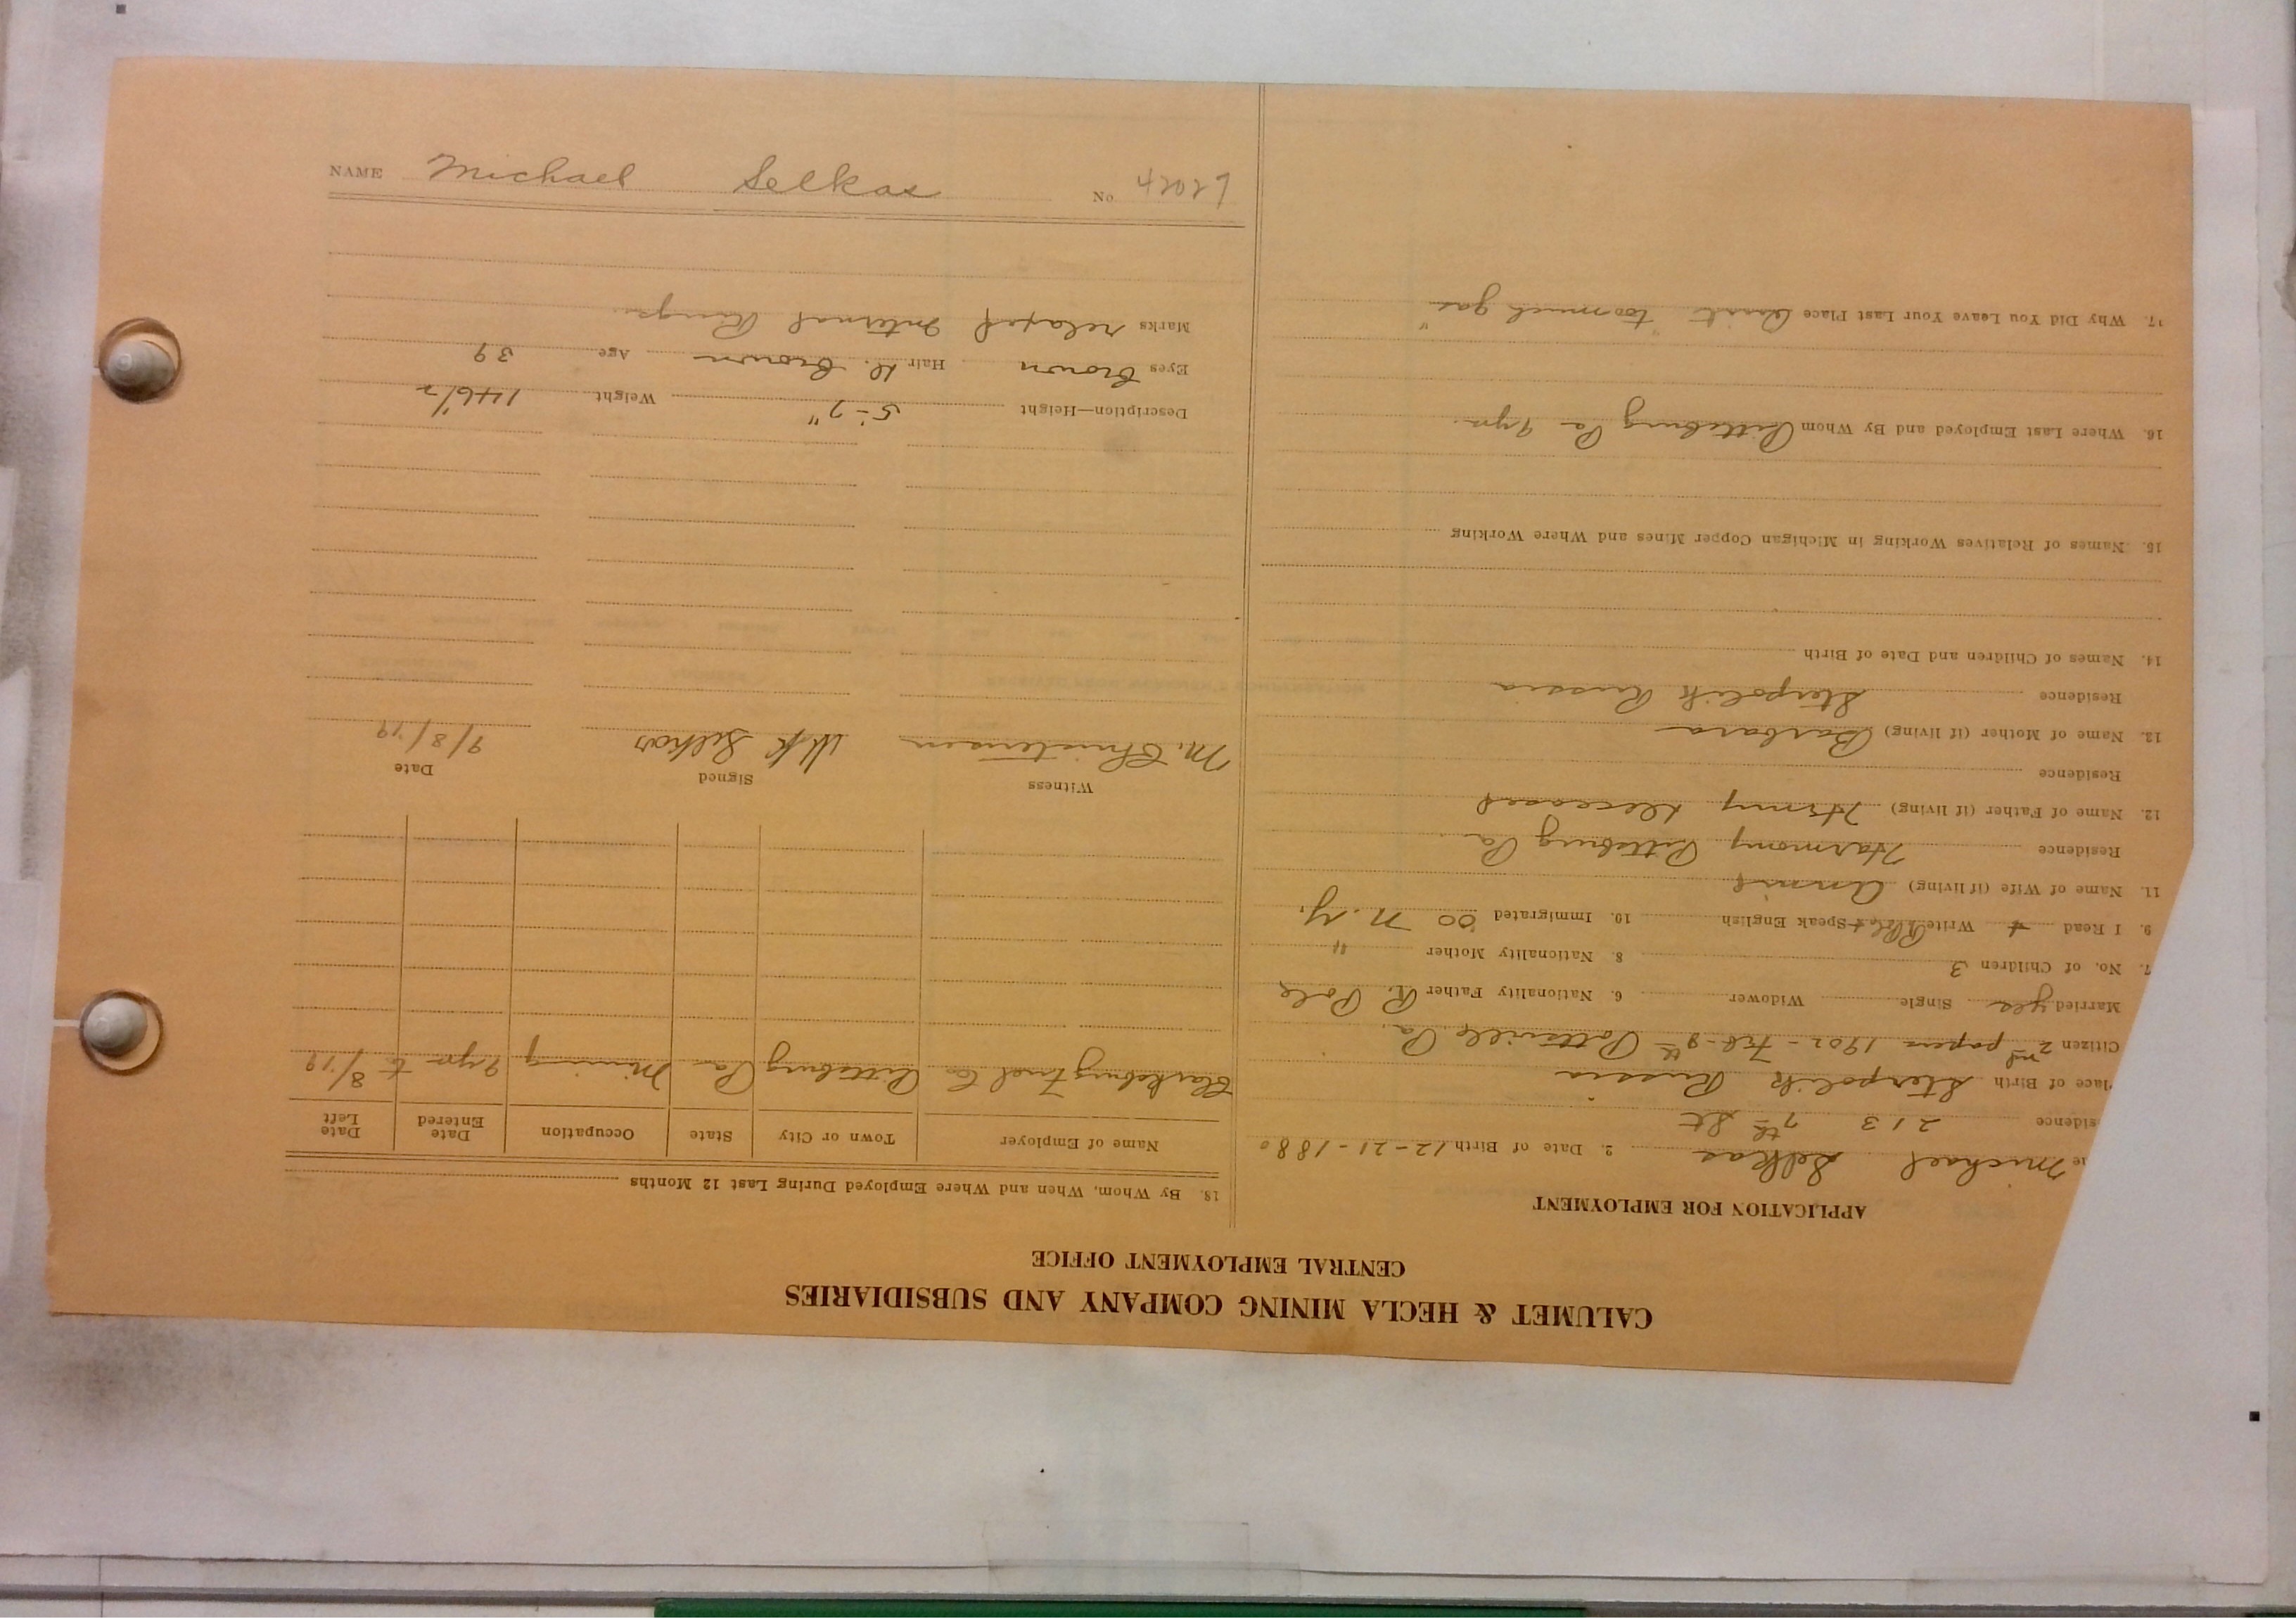 NAME Michael Selkas No. 42027
CALUMET & HECLA MINING COMPANY AND SUBSIDIARIES
CENTRAL EMPLOYMENT OFFICE
APPLICATION FOR EMPLOYMENT
Michael Selkas 2. Date of Birth 12-21-1880
sidence 213 7th St
lace of Birth Sterpolik Russia
Citizen 2nd papers 1902 - Feb-9th Pottsville Pa.
Married yes Single Widower 6. Nationality Father R. Pole
7. No. of Children 3 8. Nationality Mother "
9. I Read + Write Speak English 10. Immigrated 00 N.Y.
11. Name of Wife (if living) Annie
Residence Harmony Pittsburg Pa
12. Name of Father (if living) deceased
Residence
13. Name of Mother (if living) Barbara
Residence Sterpolik Russia
14. Names of Children and Date of Birth
15. Names of Relatives Working in Michigan Copper Mines and Where Working
16. Where Last Employed and By Whom Pittsburg Pa 9 yrs.
17. Why Did You Leave Your Last Place Quit "too much gas"
18. By Whom, When and Where Employed During Last 12 Months
Name of Employer Town or City State Occupation Date Entered Date Left
Fuel Co Pittsburg Pa Mining 9 yrs to 8/19
Witness Signed Date
M. Christensen Selkas 9/8/19
Description—Height 5'-7" Weight 146½
Eyes brown Hair d. brown Age 39
Marks relaxed Internal Rings.